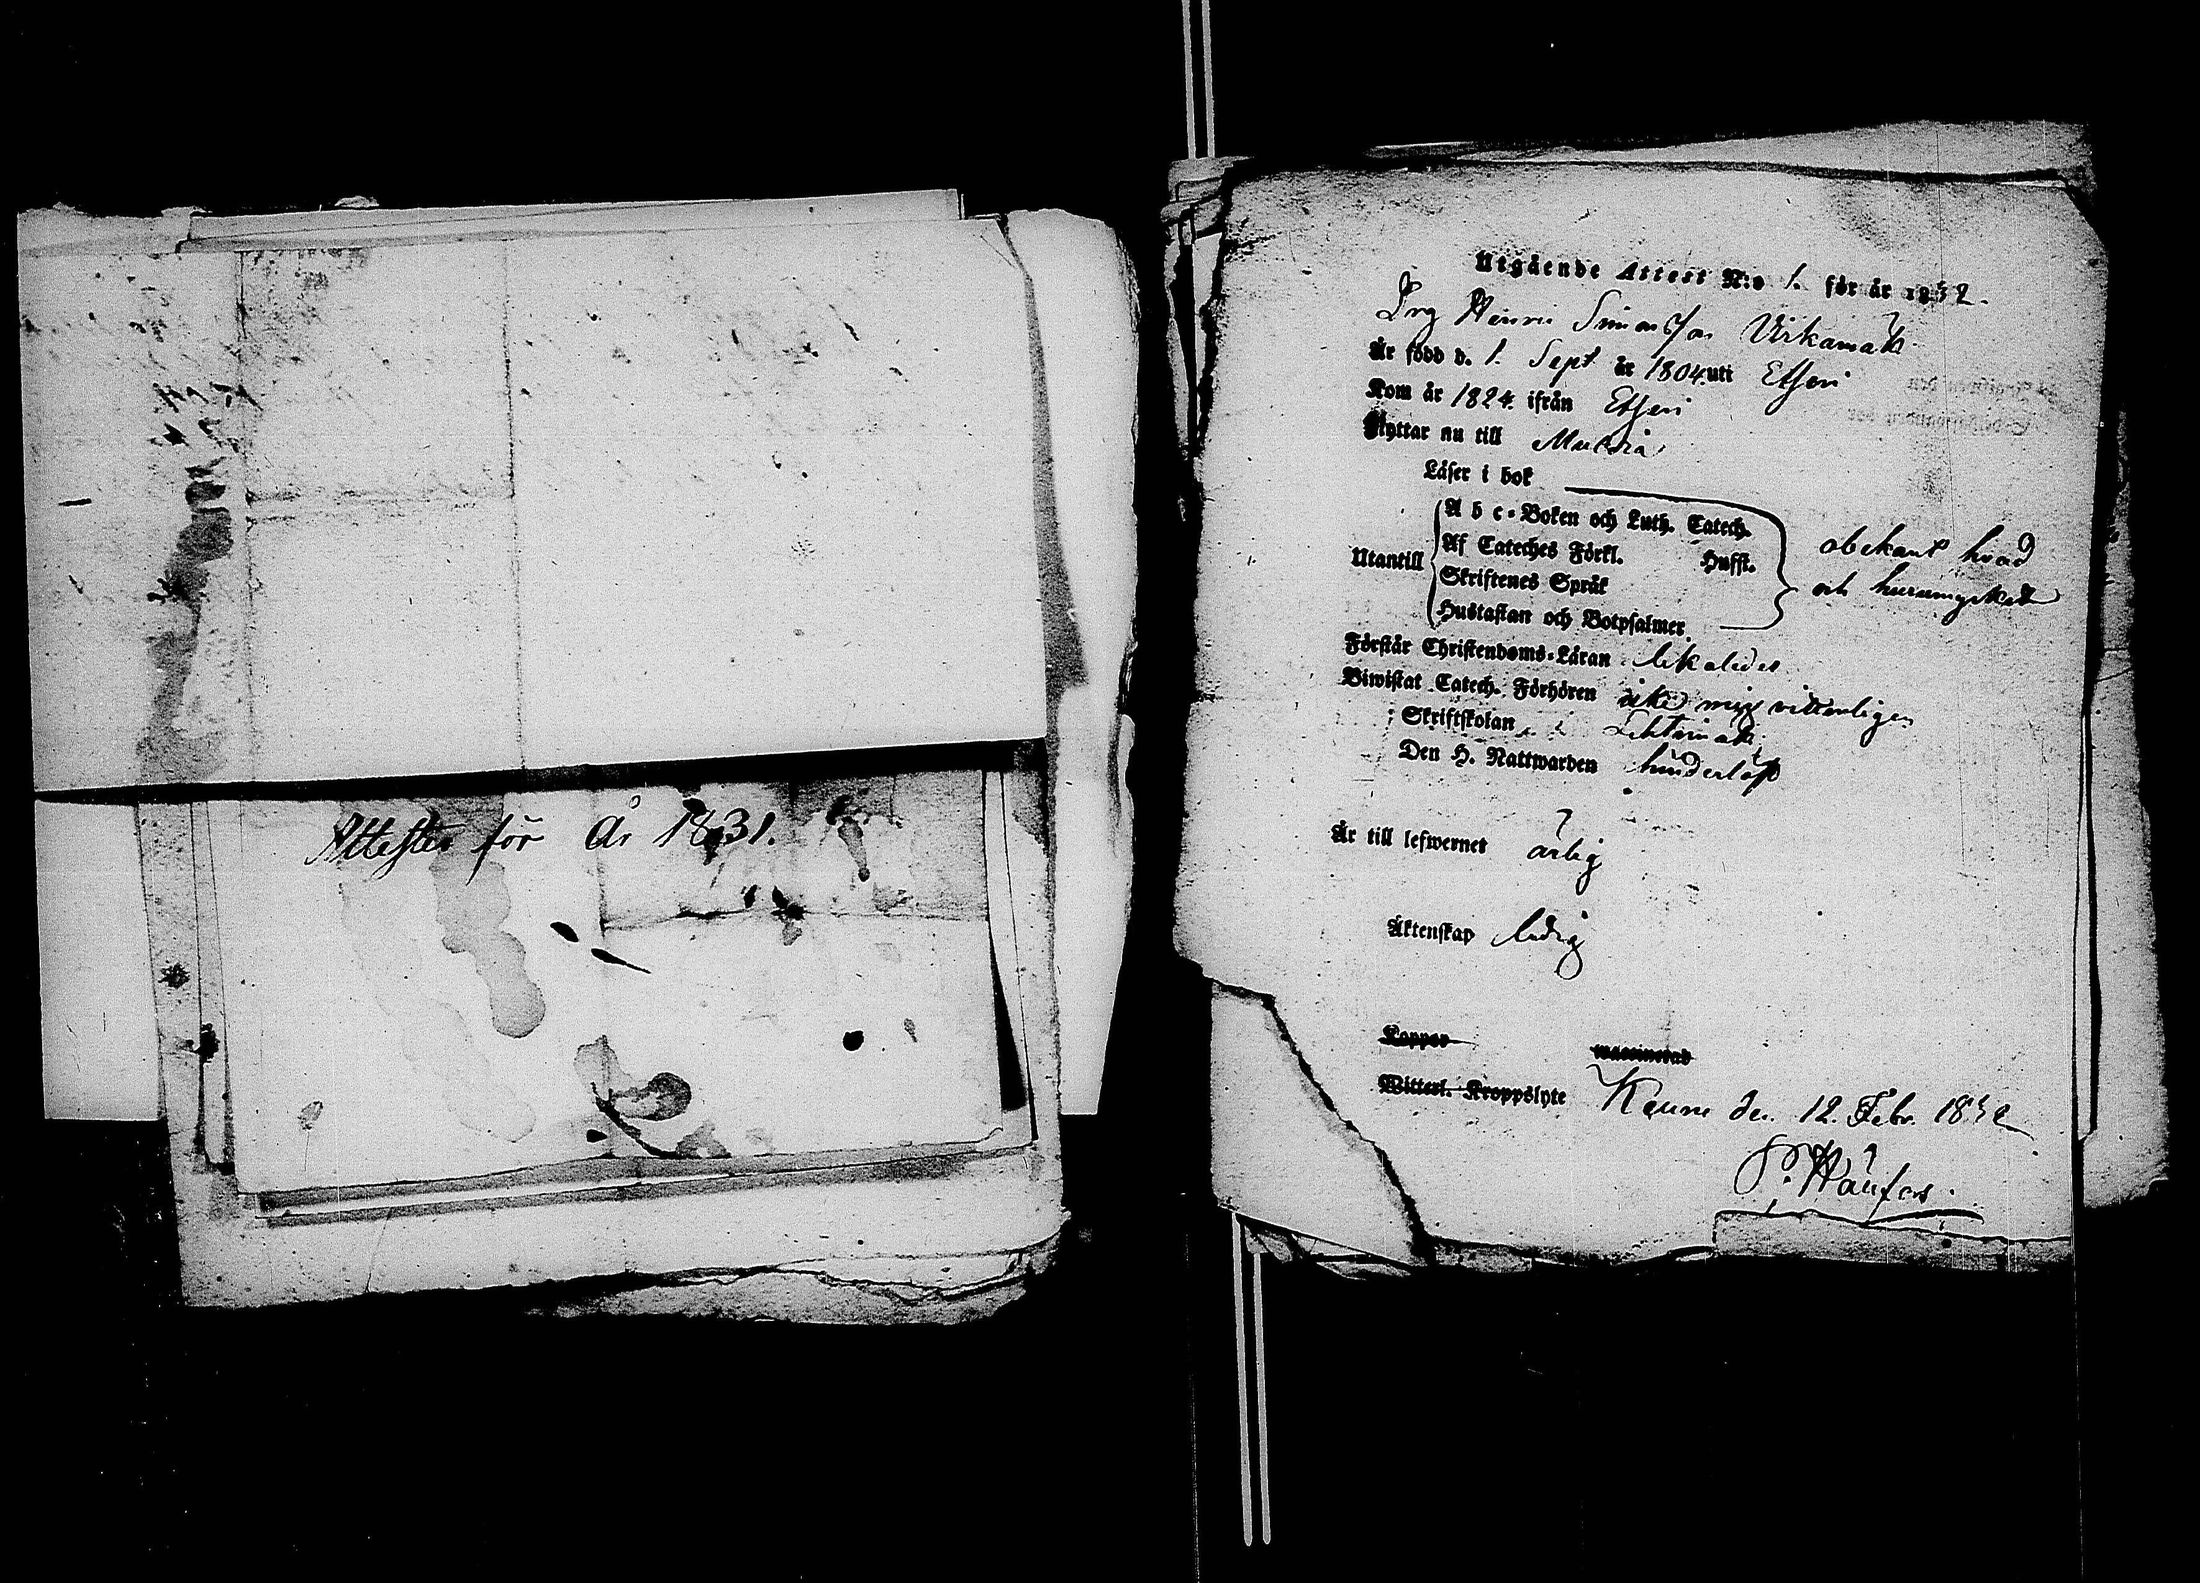 Attester för År 1831.
Utgående Attest N:o 1. för år 1832.
Drg Henric Simonsson
Är född d. 1. Sept. år 1804. uti Etseri
Kom år 1824. ifrån Etseri
Flyttar nu till Multia
Läser i bok
A b c-Boken och Luth. Catech.
Utantill Af Cateches Förkl. Husst.
obekant hvad
Skriftenes Språk
och huru mycket
Hustaflan och Botpsalmer
Förstår Christendoms-Läran likaledes
Biwistat Catech. Förhören icke mig vitterligen
Skriftskolan
Den H. Nattwarden
Är till lefwernet ärlig
Äktenskap ledig
Koppor waccinerad
Witterl. Kroppslyte
den 12. Febr. 1832